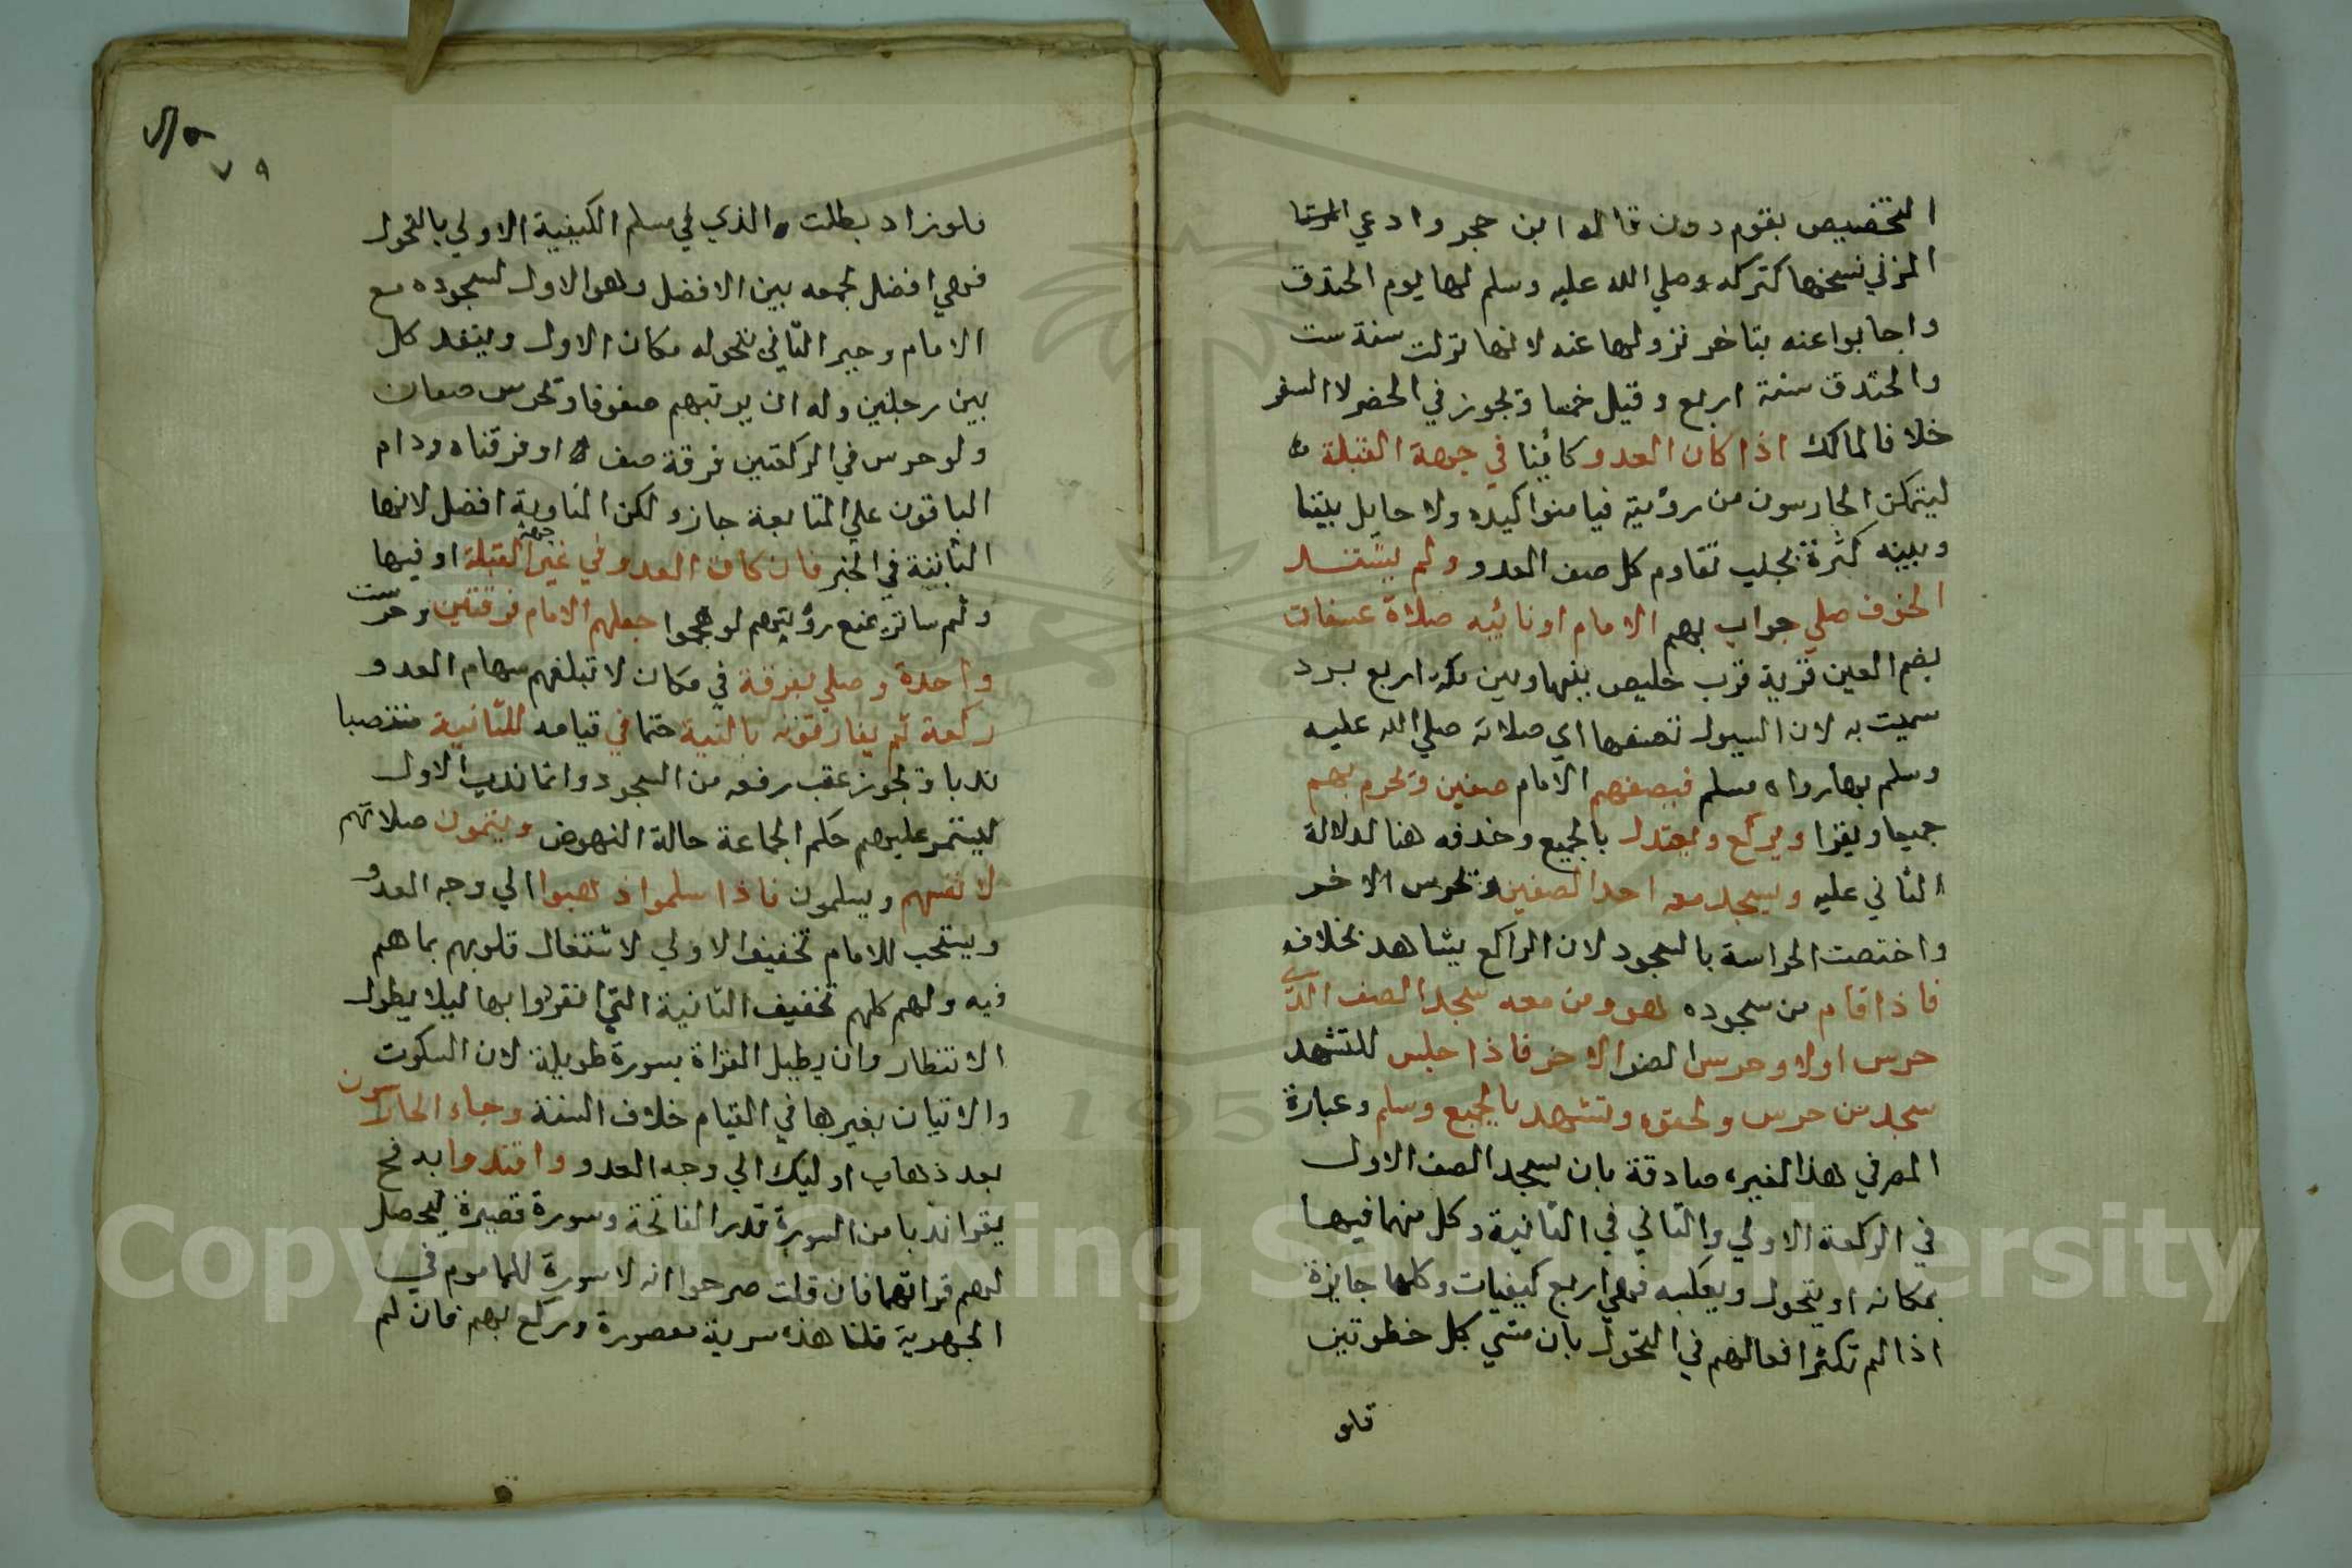 التخصيص بقوم دون قاله ابن حجر وادعي
المزني نسخها كتركه صلي الله عليه وسلم لها يوم الخندق
واجابوا عنه بتاخر نزولها عنه لانها نزلت سنة ست
والخندق سنة اربع وقيل خمسا وتجوز في الحضر لا السفر
خلافا لمالك اذا كان العدو كائنا في جهة القبلة
ليتمكن الحارسون من رؤيته فيامنوا كيده ولا حايل بيننا
وبينه كثرة بحيث تقاوم كل صف العدو ولم يشتد
الخوف صلي جواب بهم الامام او نائبه صلاة عسفان
بضم العين قرية قرب خليص بينها وبين مكة اربع برد
سميت به لان السيول تعسفها اي صلاته صلي الله عليه
وسلم بها رواه مسلم فيصفهم الامام صفين وتحرم بهم
جميعا ويقرا ويركع ويعتدل بالجميع وحذفه هنا لدلالة
الثاني عليه ويسجد معه احد الصفين وتحرس الاخر
واختصت الحراسة بالسجود لان الراكع يشاهد بخلافه
فاذا قام من سجوده هو ومن معه سجد الصف الذي
حرس اولا وحرس الصف الاخر فاذا جلس للتشهد
سجد من حرس ولحقوه وتشهد بالجميع وسلم وعبارة
المص في هذا لغيره صادقة بان يسجد الصف الاول
في الركعة الاولي والثاني في الثانية وكل منهما فيها
بمكانه او يتحول ويعكسه فهي اربع كيفيات وكلها جايزة
اذا لم تكثر افعالهم في التحول بان مشي كل خطوتين
فلو
٧٩
فلو زاد بطلت والذي في مسلم الكيفية الاولي بالتحول
فهي افضل لجمعه بين الافضل وهو الاول لسجوده مع
الامام وجبر الثاني بتحوله مكان الاول وينفد كل
بين رجلين وله ان يرتبهم صفوفا وتحرس صفان
ولو حرس في الركعتين فرقة صف او فرقتاه ودام
الباقون علي المتابعة جاز ولكن المناوبة افضل لانها
الثابتة في الخبر فان كان العدو في غير جهة القبلة او فيها
وثم ساتر يمنع رؤيتهم لو هجموا جعلهم الامام فرقتين وحرست
واحدة وصلي بفرقة في مكان لا تبلغهم سهام العدو
ركعة ثم يفارقونه بالنية حتما في قيامه للثانية منتصبا
ندبا وتجوز عقب رفعه من السجود وانما ندب الاول
ليستمر عليهم حكم الجماعة حالة النهوض ويتمون صلاتهم
لانفسهم ويسلمون فاذا سلموا ذهبوا الي وجه العدو
ويستحب للامام تخفيف الاولي لاشتغال قلوبهم بما هم
فيه ولهم كلهم تخفيف الثانية التي انفردوا بها ليلا يطول
الانتظار وان يطيل القراة بسورة طويلة لان السكوت
والاتيان بغيرها في القيام خلاف السنة وجاء الحارسون
بعد ذهاب اوليك الي وجه العدو واقتدوا به فح
يقرا ندبا من السورة قدر الفاتحة وسورة قصيرة ليحصل
لهم قراتهما فان قلت صرحوا انه لا سورة للماموم في
الجهرية قلنا هذه سرية مقصورة وركع بهم فان لم
Copyright © King Saud University
195